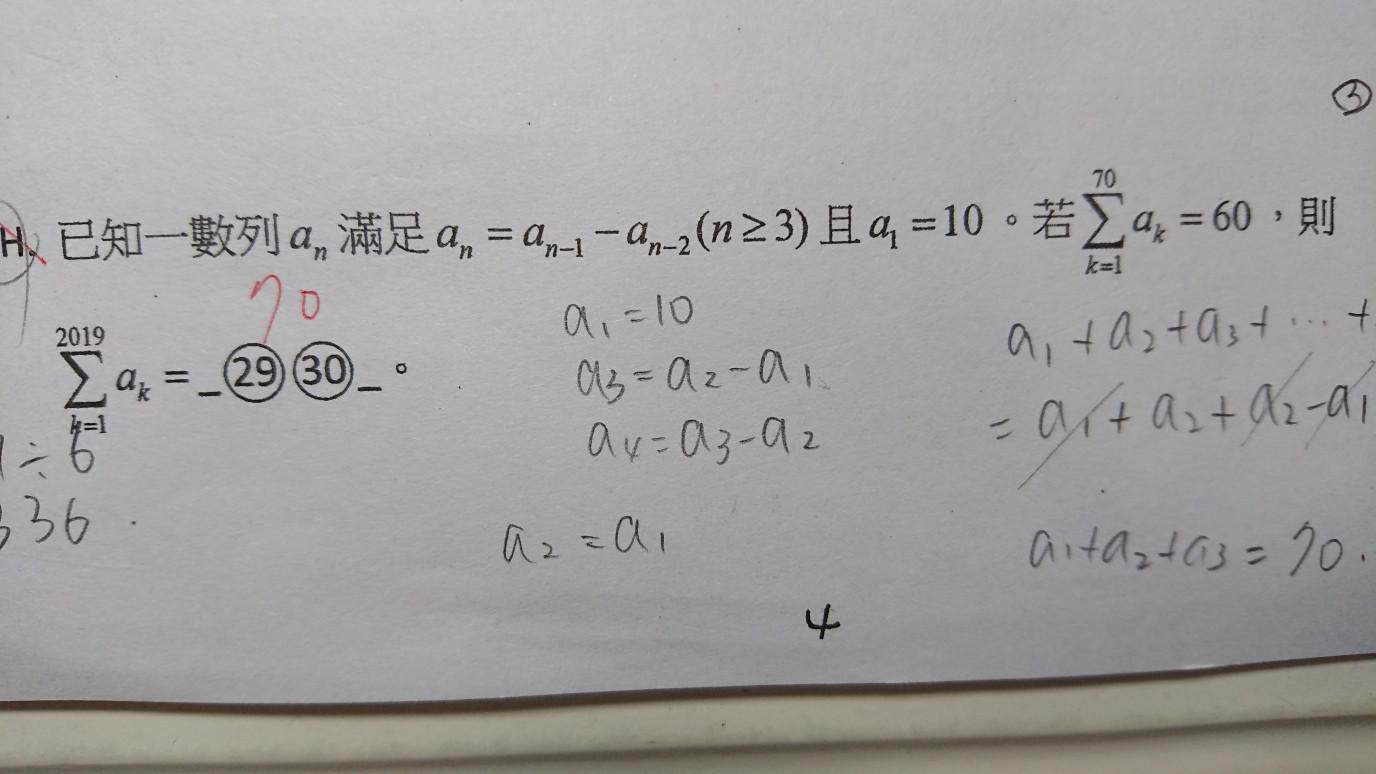 ③
H. 已知一數列 aₙ 滿足 aₙ = aₙ₋₁ − aₙ₋₂ (n ≥ 3) 且 a₁ = 10 。若 ∑_{k=1}^{70} aₖ = 60 ，則
70
∑_{k=1}^{2019} aₖ = _㉙㉚_ 。
a₁ = 10
a₃ = a₂ − a₁
a₄ = a₃ − a₂
a₂ = a₁
a₁ + a₂ + a₃ + … +
= a₁ + a₂ + a₂ − a₁
a₁ + a₂ + a₃ = 70 .
÷ 6
336
4